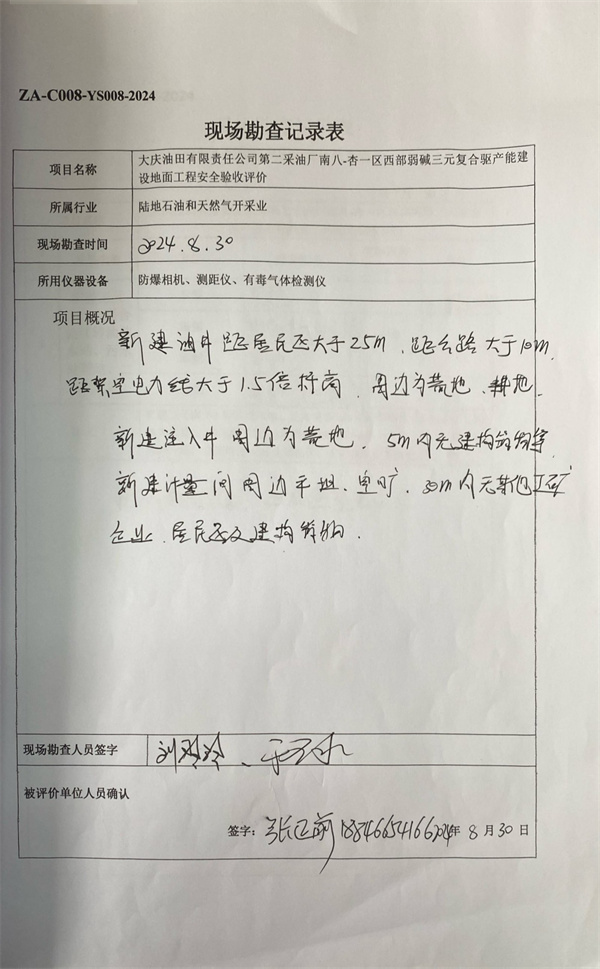 ZA-C008-YS008-2024
现场勘查记录表
项目名称
大庆油田有限责任公司第二采油厂南八-杏一区西部弱碱三元复合驱产能建
设地面工程安全验收评价
所属行业
陆地石油和天然气开采业
现场勘查时间
2024.8.30
所用仪器设备
防爆相机、测距仪、有毒气体检测仪
项目概况
新建油井距居民区大于25m、距公路大于10m、
距架空电力线大于1.5倍杆高、周边为荒地、耕地、
新建注入井周边为荒地、5m内无建构筑物等
新建计量间周边平坦、空旷、30m内无其他工矿
企业、居民区及建构筑物.
现场勘查人员签字
刘玲玲、
被评价单位人员确认
签字：张正前 18846654166 2024年 8 月 30 日